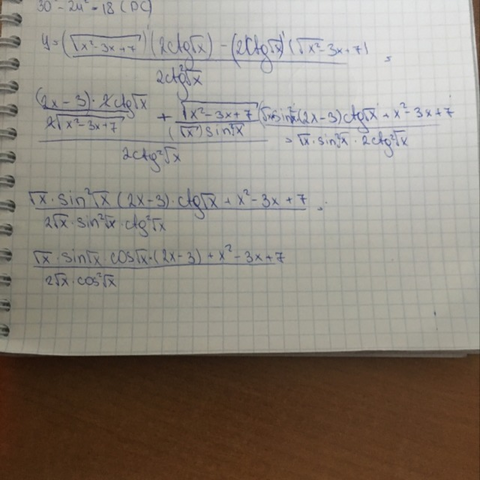 30² - 24² = 18 (DC)
y = (√x²-3x+7)' (2ctg√x) - (2ctg√x)' (√x²-3x+7)
2ctg²√x
(2x-3)·2ctg√x + √x²-3x+7 √x sin²√x (2x-3) ctg√x + x²-3x+7
2√x²-3x+7 (√x) sin²√x = √x · sin²√x · 2ctg²√x
2ctg²√x
√x · sin²√x (2x-3) · ctg√x + x²-3x+7 =
2√x · sin²√x · ctg²√x
√x · sin√x cos√x · (2x-3) + x²-3x+7
2√x · cos²√x